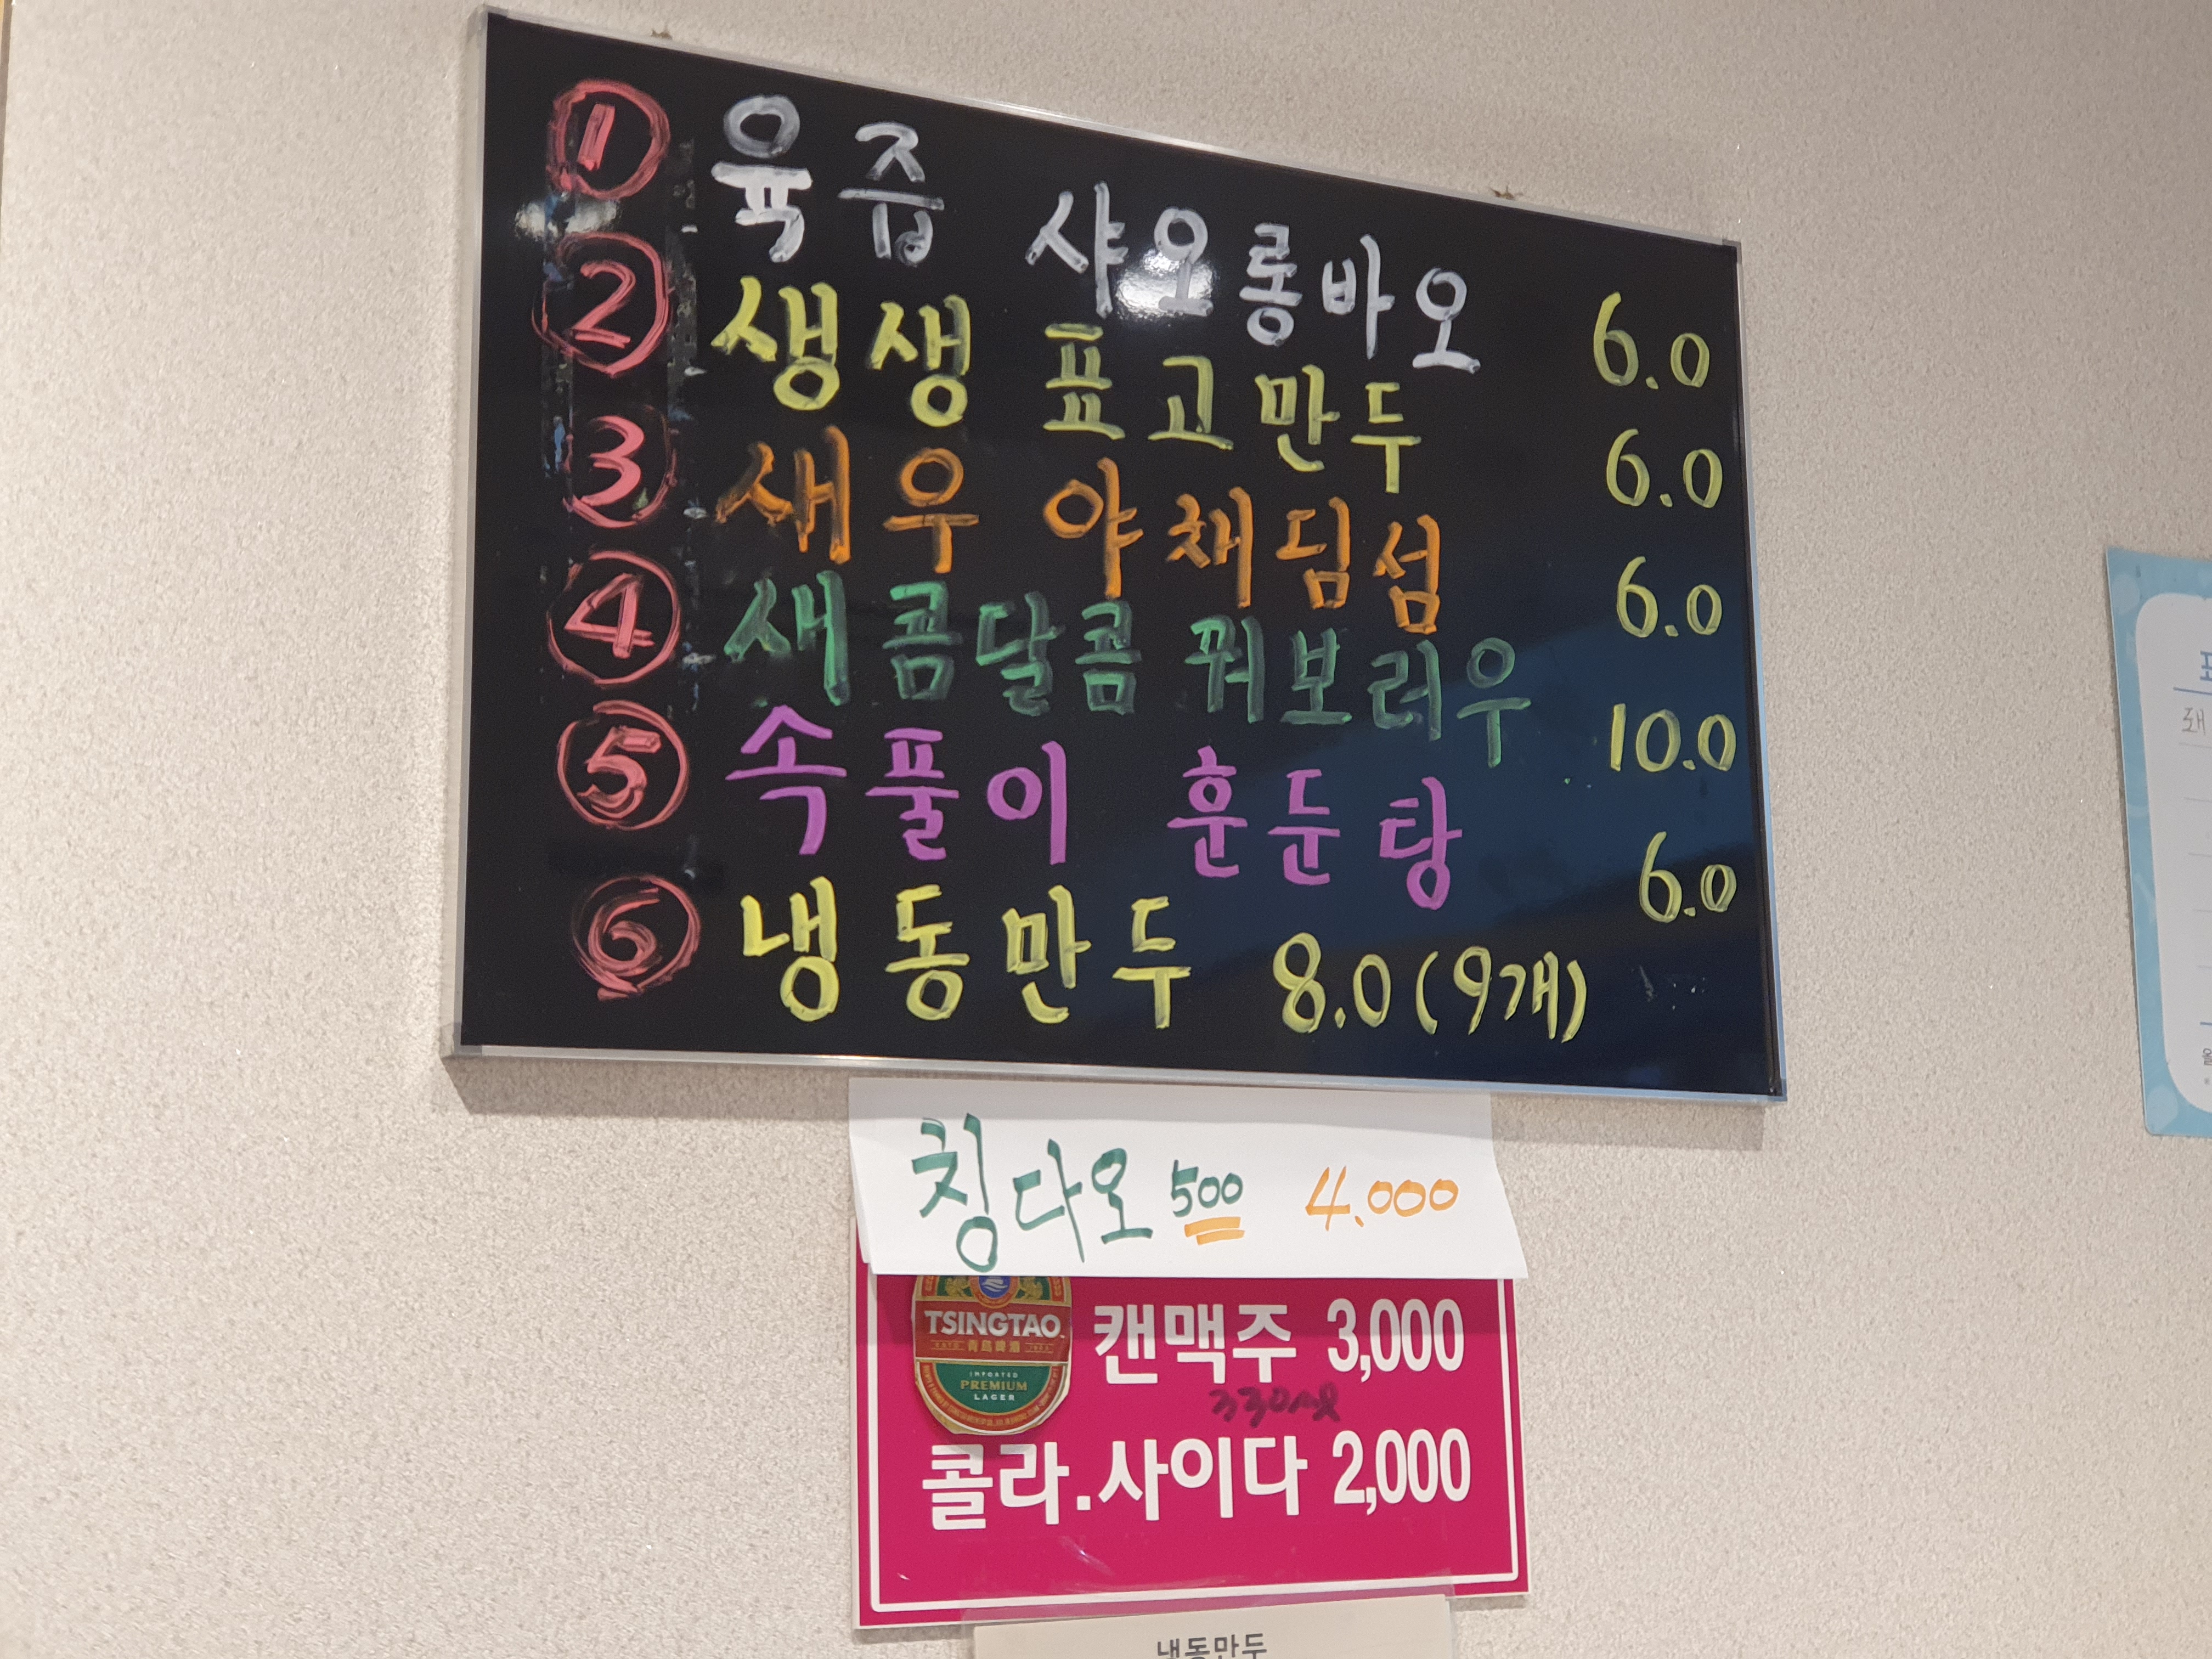 ① 육즙 샤오롱바오 6.0
② 생생 표고만두 6.0
③ 새우 야채딤섬 6.0
④ 새콤달콤 꿔보러우 10.0
⑤ 속풀이 훈둔탕 6.0
⑥ 냉동만두 8.0 (9개)
칭다오 500 4.000
TSINGTAO
青島啤酒
IMPORTED
PREMIUM
LAGER
캔맥주 3,000
330ml
콜라.사이다 2,000
냉동만두